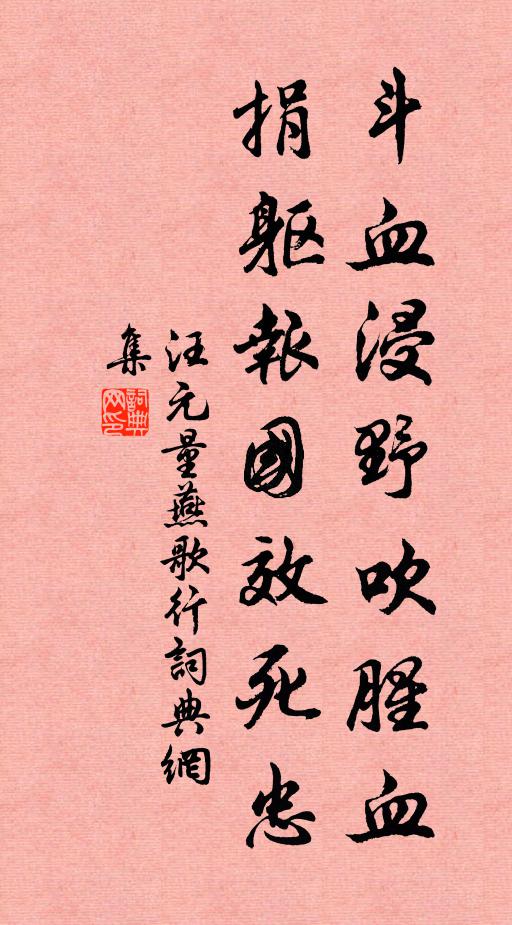 斗血浸野吹腥血
捐軀報國效死忠
汪元量燕歌行詞典網
集
詞典網印